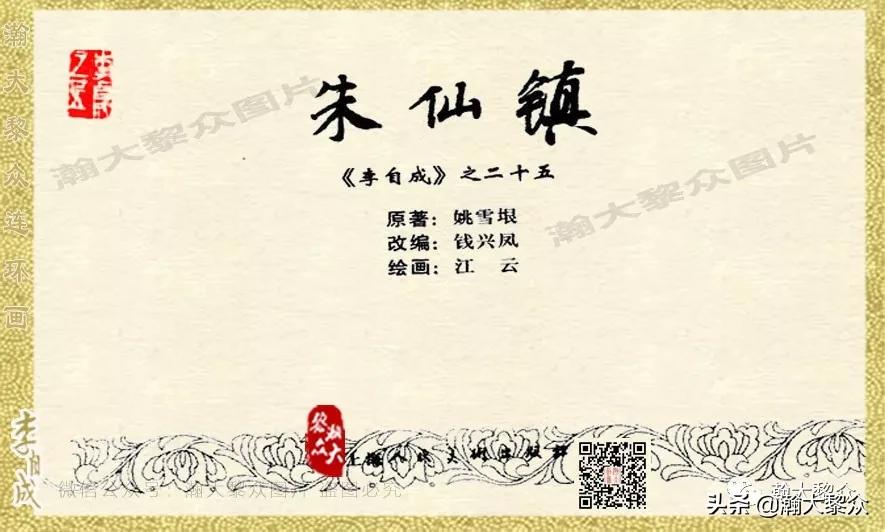 朱仙镇
《李自成》之二十五
原著：姚雪垠
改编：钱兴凤
绘画：江 云
上海人民美术出版社
瀚大黎众连环画
李自成
瀚大黎众图片
瀚大黎众图片
瀚大黎众
微信公众号：瀚大黎众图片 盗图必究
瀚大黎众
头条@瀚大黎众